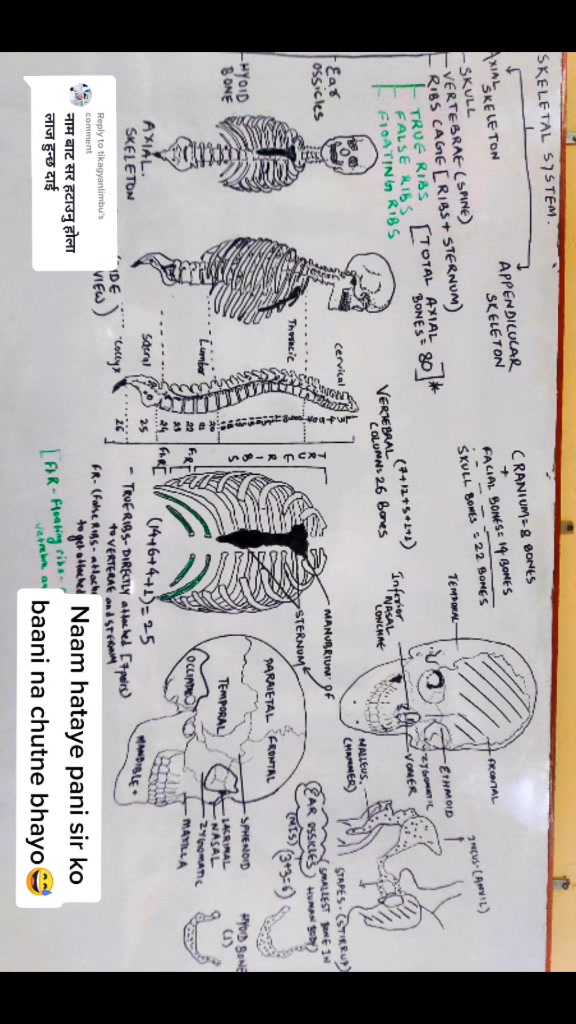 SKELETAL SYSTEM.
AXIAL SKELETON
SKULL
VERTEBRAE (SPINE)
RIBS CAGE [RIBS + STERNUM)
TRUE RIBS
FALSE RIBS
FLOATING RIBS
[TOTAL AXIAL
BONES = 80]*
Ear
OSSICLES
HYOID
BONE
APPENDICULAR
SKELETON
AXIAL.
SKELETON
VIEW)
cervical
Thoracic
Lumbar
Sacral
Coccyx
20
21
22
23
24
25
26
VERTEBRAL (7+12+5+1+1)
COLUMN = 26 Bones
CRANIUM = 8 BONES
+
FACIAL BONES = 14 BONES
SKULL BONES = 22 BONES
TRUE RIBS
F.R
FLR
MANUBRIUM OF
STERNUM
(14+6+4+1) = 25
- TRUE RIBS - DIRECTLY attached [7 pair]
to VERTEBRAE and STERNUM
FR - (False RIBS - attach
to get attached
[FLR - Floating ribs -
TEMPORAL
FRONTAL
ETHMOID
ZYGOMATIC
VOMER
Inferior
NASAL
CONCHAE
PARAIETAL
FRONTAL
TEMPORAL
OCCIPITAL
MANDIBLE
SPHENOID
LACRIMAL
NASAL
ZYGOMATIC
MAXILLA
MALLEUS.
(HAMMER)
INCUS - (ANVIL)
STAPES - (STIRRUP)
(SMALLEST BONE IN
HUMAN BODY)
EAR OSSICLES
(3+3=6)
HYOID BONE
(1)
Reply to tikagyanlimbu's
comment
नाम बाट सर हटाउनु होला
लाज हुन्छ दाई
Naam hataye pani sir ko
baani na chutne bhayo😅